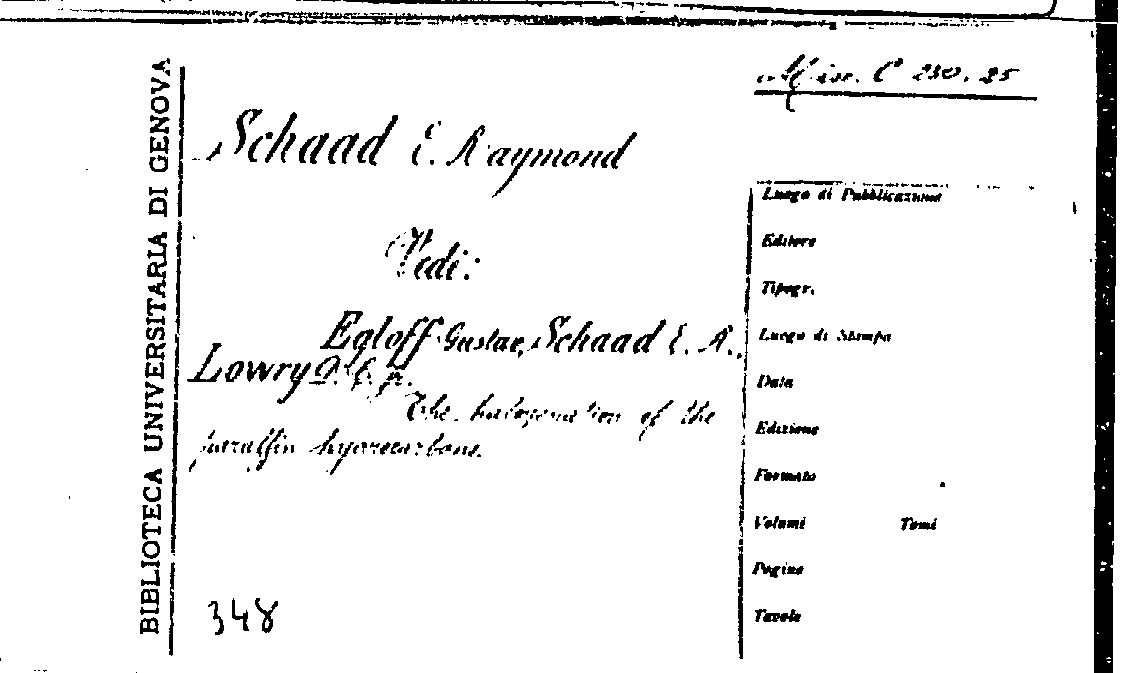 BIBLIOTECA UNIVERSITARIA DI GENOVA
Misc. C 230. 25
Schaad E. Raymond
Vedi:
Egloff Gustav, Schaad E. R.,
Lowry D. C. jr.
The halogenation of the
paraffin hyorocarbons.
348
Luogo di Pubblicazione
Editore
Tipogr.
Luogo di Stampa
Data
Edizione
Formato
Volumi Tomi
Pagine
Tavole